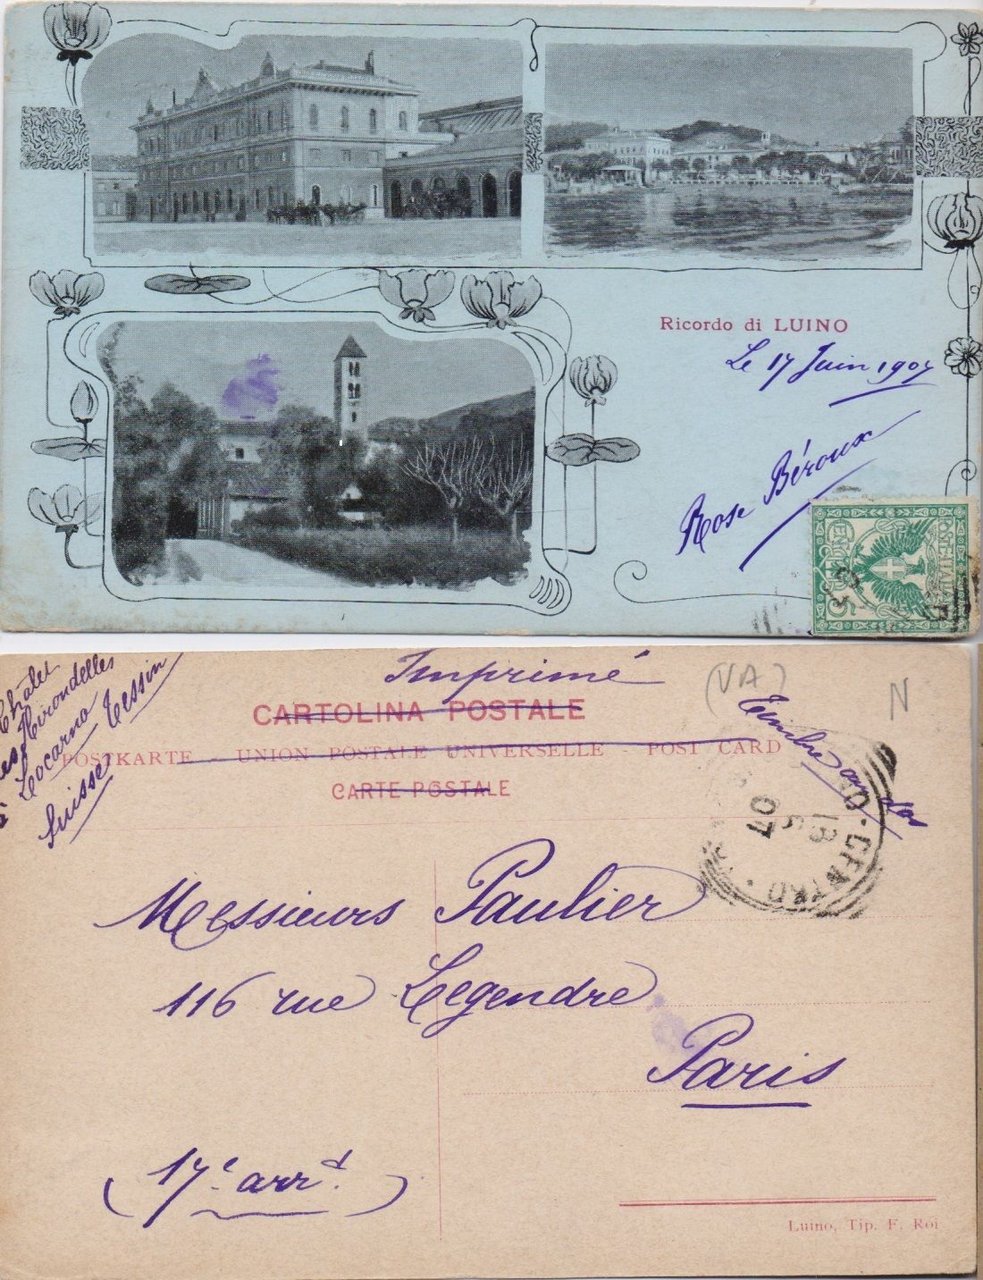 Ricordo di LUINO
Le 17 Juin 1907
Rose Béroux
POSTE ITALIANE
Chalet
les Hirondelles
Locarno Tessin
Suisse
Imprimé
(VA)
N
CARTOLINA POSTALE
POSTKARTE - UNION POSTALE UNIVERSELLE - POST CARD
CARTE POSTALE
Timbre au dos
CENTRO
18 6 07
Messieurs Paulier
116 rue Legendre
Paris
(17e arrt.)
Luino, Tip. F. Roi